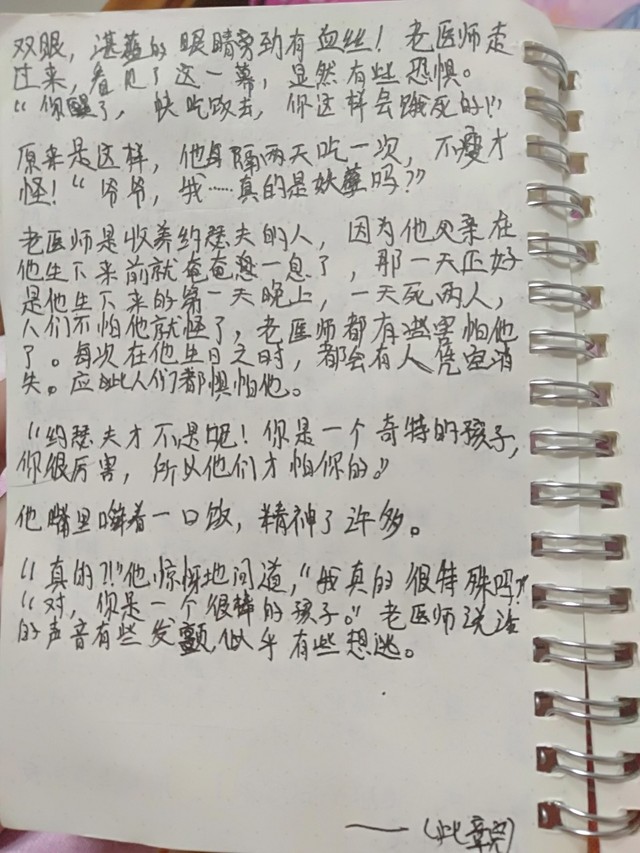 双眼，湛蓝的眼睛旁劲有血丝！老医师走
过来，看见了这一幕，显然有些恐惧。
“你醒了，快吃饭去，你这样会饿死的！”
原来是这样，他每隔两天吃一次，不瘦才
怪！“爷爷，我……真的是妖孽吗？”
老医师是收养约瑟夫的人，因为他父亲在
他生下来前就奄奄息一息了，那一天正好
是他生下来的第一天晚上，一天死两人，
人们不怕他就怪了，老医师都有些害怕他
了。每次在他生日之时，都会有人凭空消
失。应此人们都惧怕他。
“约瑟夫才不是呢！你是一个奇特的孩子，
你很厉害，所以他们才怕你的。”
他嘴里嚼着一口饭，精神了许多。
“真的？！”他惊讶地问道，“我真的很特殊吗？”
“对，你是一个很棒的孩子。”老医师说话
的声音有些发颤似乎有些想逃。
——（此章完）